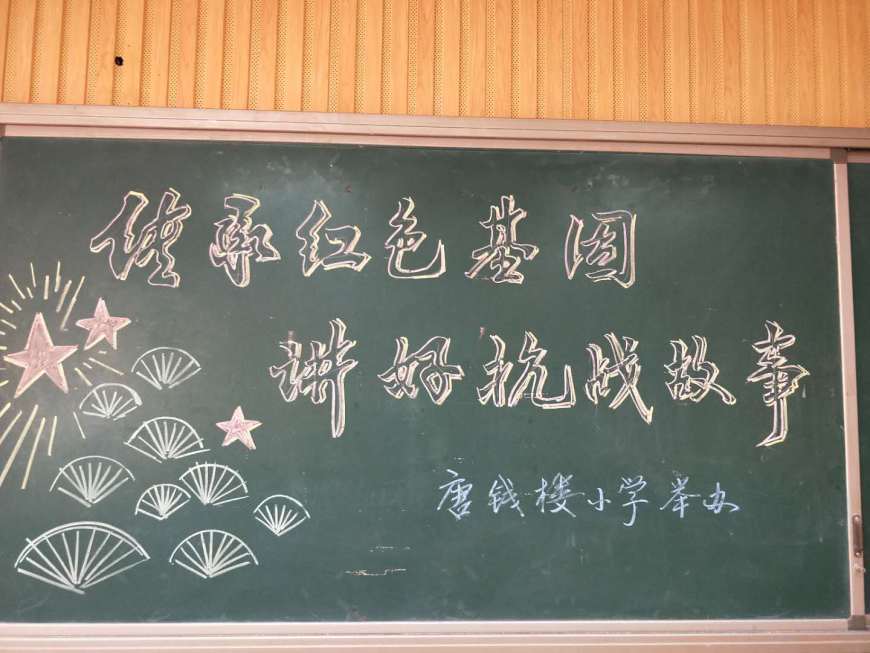 传承红色基因
讲好抗战故事
唐钱楼小学举办